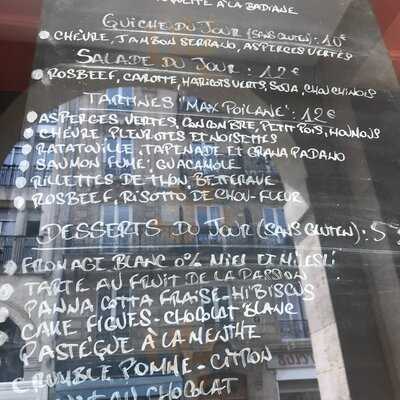 À LA BADIANE
QUICHE DU JOUR (SANS GLUTEN) : 10€
CHÈVRE, JAMBON SERRANO, ASPERGES VERTES
SALADE DU JOUR : 12€
ROSBEEF, CAROTTE, HARICOTS VERTS, SOJA, CHOU CHINOIS
TARTINES "MAX POILANE" : 12€
ASPERGES VERTES, CONCOMBRE, PETIT POIS, HOUMOUS
CHÈVRE PLEUROTES ET NOISETTES
RATATOUILLE, TAPENADE ET GRANA PADANO
SAUMON FUMÉ, GUACAMOLE
RILLETTES DE THON, BETTERAVE
ROSBEEF, RISOTTO DE CHOU-FLEUR
DESSERTS DU JOUR (SANS GLUTEN) : 5
FROMAGE BLANC 0% MIEL ET MUESLI
TARTE AU FRUIT DE LA PASSION
PANNA COTTA FRAISE-HIBISCUS
CAKE FIGUES-CHOCOLAT BLANC
PASTÈQUE À LA MENTHE
CRUMBLE POMME-CITRON
AU CHOCOLAT